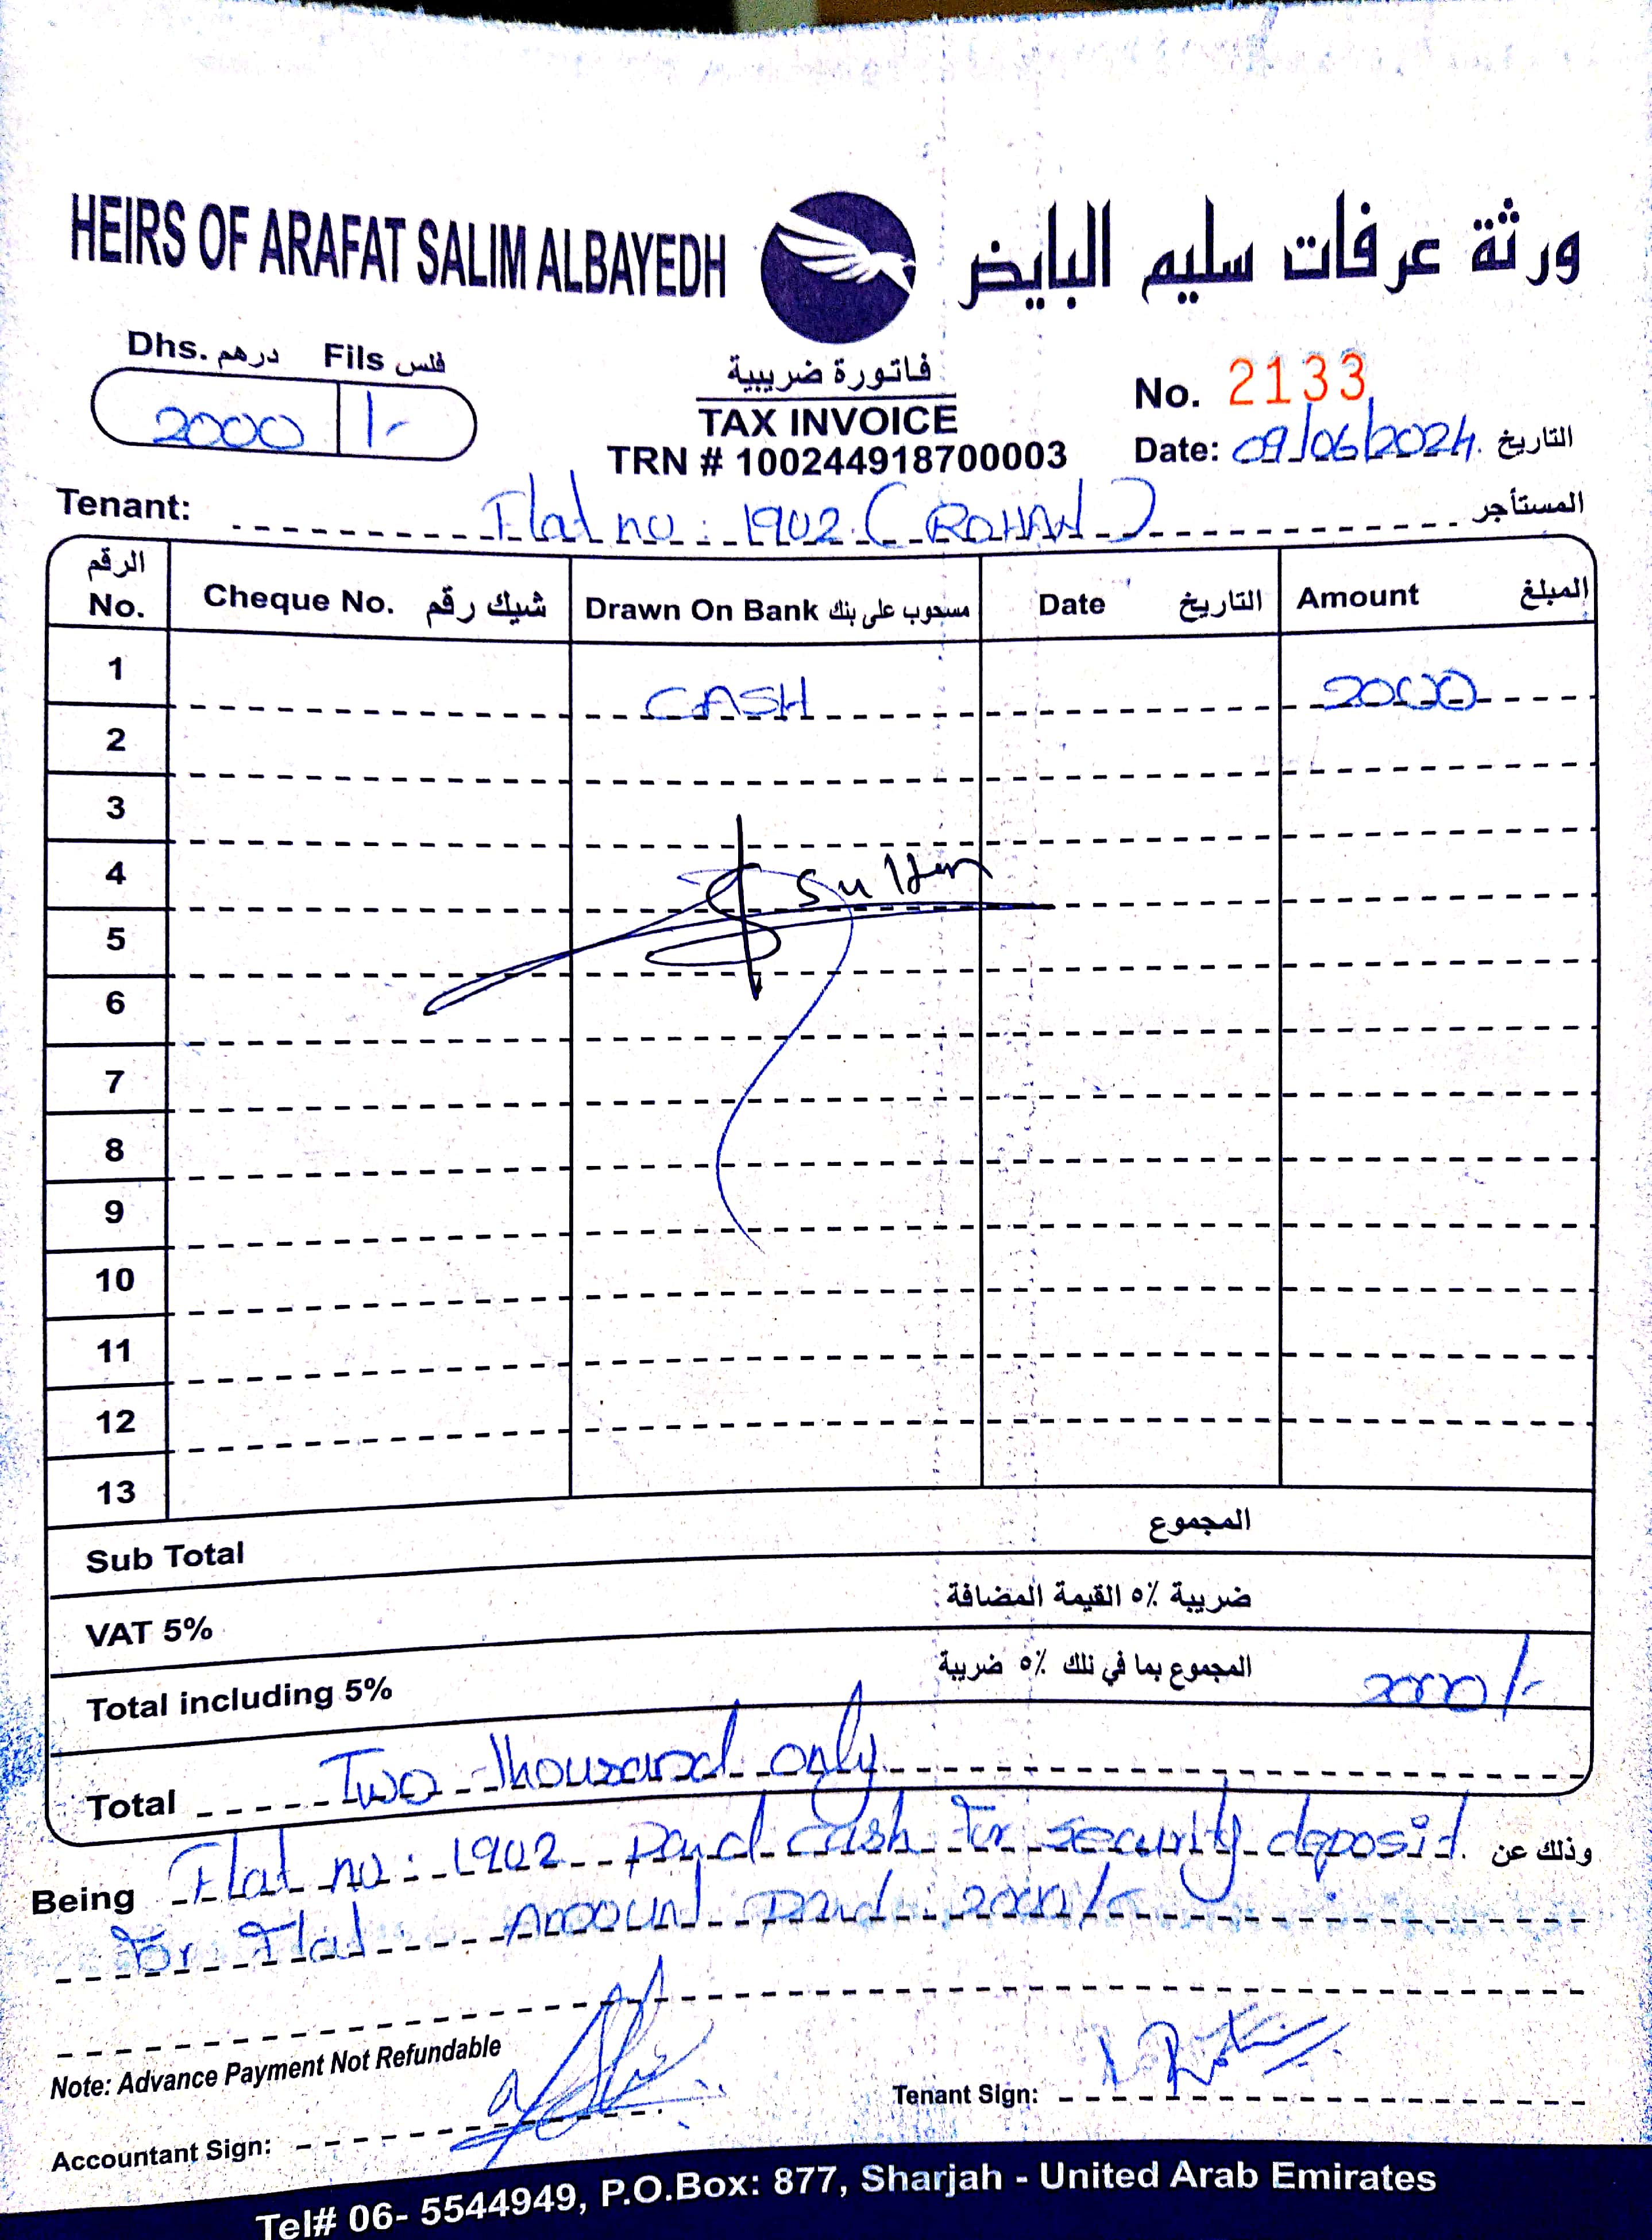 HEIRS OF ARAFAT SALIM ALBAYEDH
ورثة عرفات سليم البايض
Dhs. درهم Fils فلس
2000 /-
فاتورة ضريبية
TAX INVOICE
TRN # 100244918700003
No. 2133
Date: 09/06/2024 التاريخ
Tenant: Flat no: 1902 (ROHAN) المستأجر
الرقم No. Cheque No. شيك رقم Drawn On Bank مسحوب على بنك Date التاريخ Amount المبلغ
1 CASH 2000
2
3
4 Sultan
5
6
7
8
9
10
11
12
13
Sub Total المجموع
VAT 5% ضريبة ٥٪ القيمة المضافة
Total including 5% المجموع بما في ذلك ٥٪ ضريبة 2000/-
Total Two Thousand only
Being Flat no: 1902 Paid cash for security deposit وذلك عن
for Flat Amount Paid 2000/-
Note: Advance Payment Not Refundable
Accountant Sign:
Tenant Sign:
Tel# 06- 5544949, P.O.Box: 877, Sharjah - United Arab Emirates